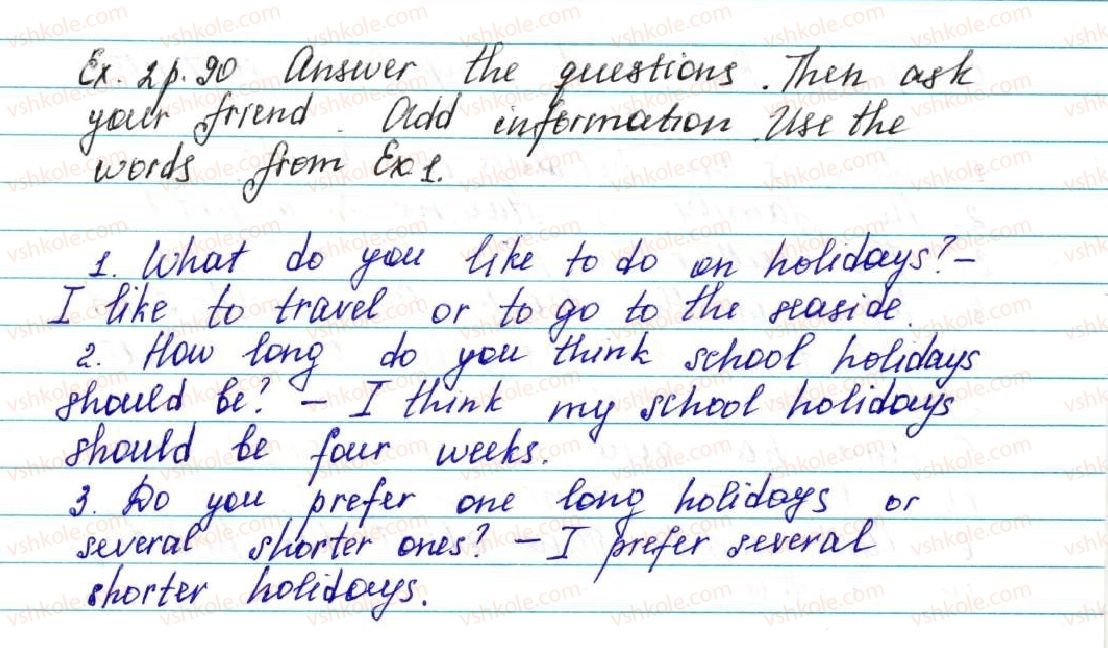 Ex. 2 p. 90 Answer the questions. Then ask
your friend. Add information. Use the
words from Ex 1.
1. What do you like to do on holidays? –
I like to travel or to go to the seaside.
2. How long do you think school holidays
should be? – I think my school holidays
should be four weeks.
3. Do you prefer one long holidays or
several shorter ones? – I prefer several
shorter holidays.
vshkole.com